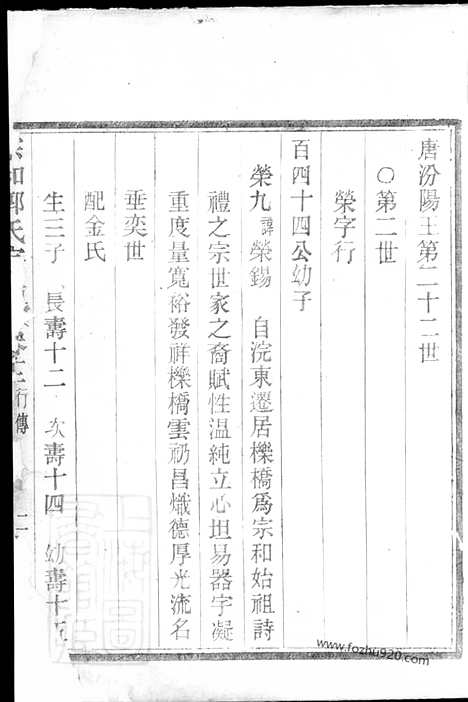 唐汾陽王第二十二世
○第二世
榮字行
百四十四公幼子
榮九諱榮錫　自浣東遷居櫟橋爲宗和始祖詩
禮之宗世家之裔賦性温純立心坦易器字凝
重度量寬裕發祥櫟橋雲礽昌熾德厚光流名
垂奕世
配金氏
生三子　長壽十二　次壽十四　幼壽十五
宗和郭氏宗
行傳
二
www.fozhu920.com